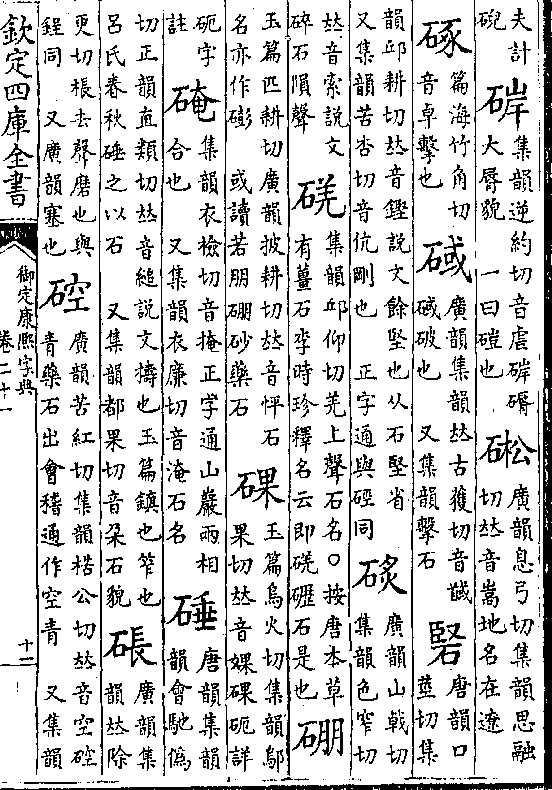 夫計
硯
硸
集韻逆約切音虐硸碈
大脣貌 一曰磑也
硹
廣韻息弓切集韻思融
切𠀤音嵩地名在遼
硺
篇海竹角切
音卓擊也
廣韻集韻𠀤古獲切音馘
破也 又集韻擊石
硻
唐韻口
莖切集
韻邱耕切𠀤音鏗說文餘堅也从石堅省
又集韻苦杏切音伉剛也 正字通與硜同
廣韻山戟切
集韻色窄切
𠀤音索說文
碎石隕聲
集韻邱仰切羌上聲石名○按唐本草
有薑石李時珍釋名云即礰石是也
硼
玉篇匹耕切廣韻披耕切𠀤音怦石
名亦作磞 或讀若朋硼砂藥石
玉篇烏火切集韻鄔
果切𠀤音婐砈詳
砈字
註
硽
集韻衣檢切音掩正字通山巖兩相
合也 又集韻衣廉切音淹石名
硾
唐韻集韻
韻會馳僞
切正韻直類切𠀤音縋說文擣也玉篇鎮也笮也
呂氏春秋硾之以石 又集韻都果切音朵石貌
廣韻集
韻𠀤除
更切棖去聲磨也與
鋥同 又廣韻塞也
硿
廣韻苦紅切集韻楛公切𠀤音空硿
青藥石出會稽通作空青 又集韻
欽定四庫全書
御定康熙字典
卷二十一
十二